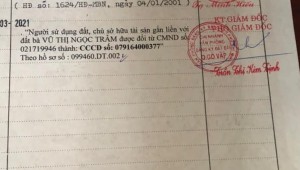 ( HĐ số: 1624/HĐ-MBN, ngày 04/01/2001 )
KT.GIÁM ĐỐC
PHÓ GIÁM ĐỐC
03-2021
"Người sử dụng đất, chủ sở hữu tài sản gắn liền với
đất bà VŨ THỊ NGỌC TRÂM được đổi từ CMND số
021719946 thành CCCD số: 079164000377"
Theo hồ sơ số : 099460.DT.002
Q.GÒ VẤP
Trần Thị Kim Định